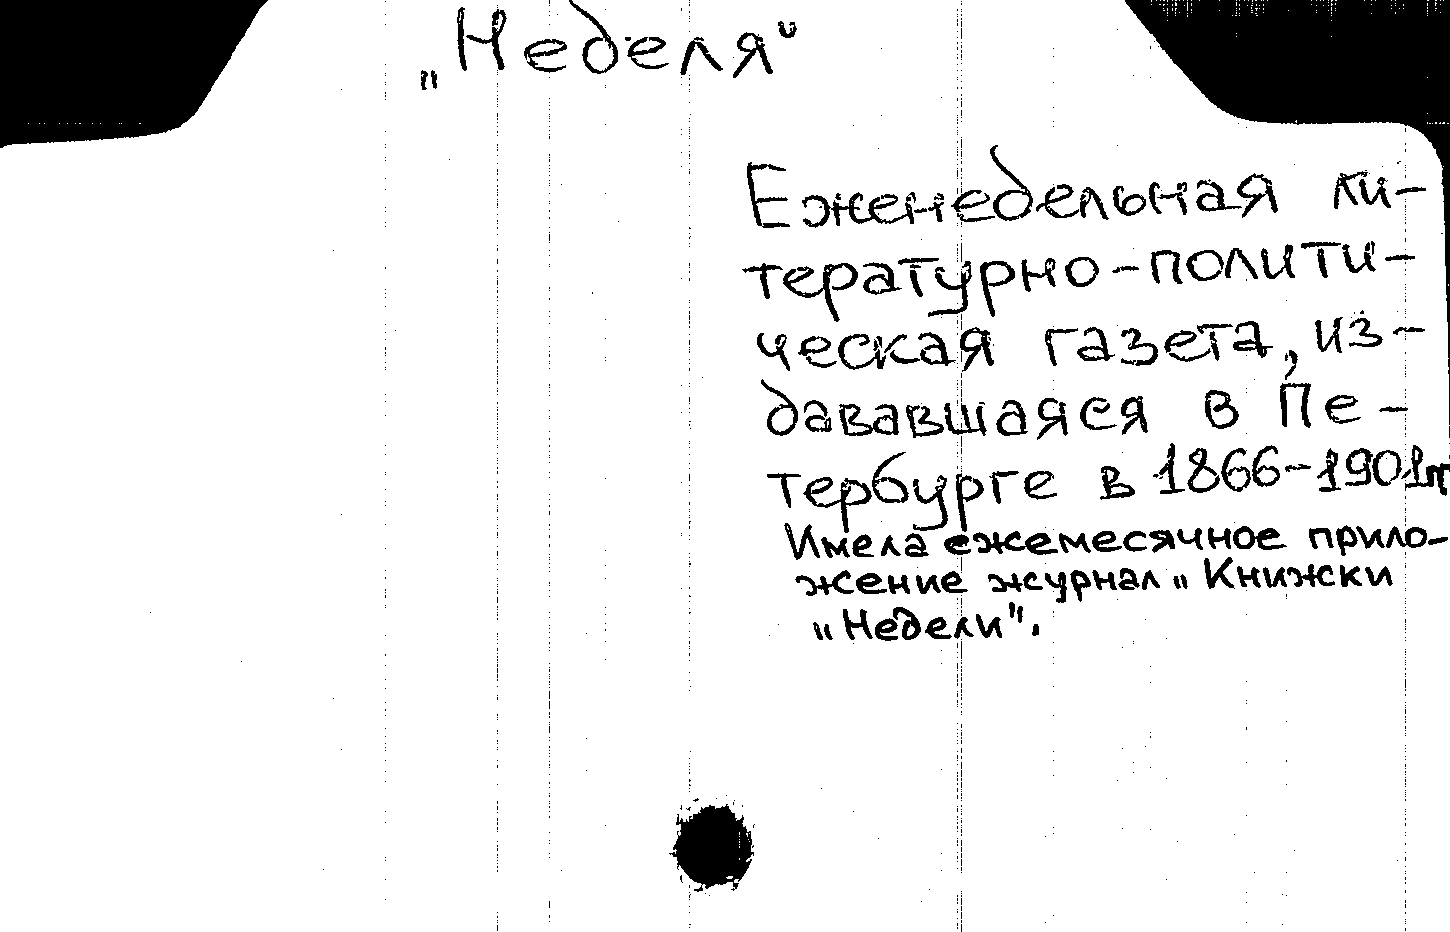 „Неделя“
Еженедельная ли-
тературно-полити-
ческая газета, из-
дававшаяся в Пе-
тербурге в 1866-1901гг
Имела ежемесячное прило-
жение журнал „Книжски
„Недели".